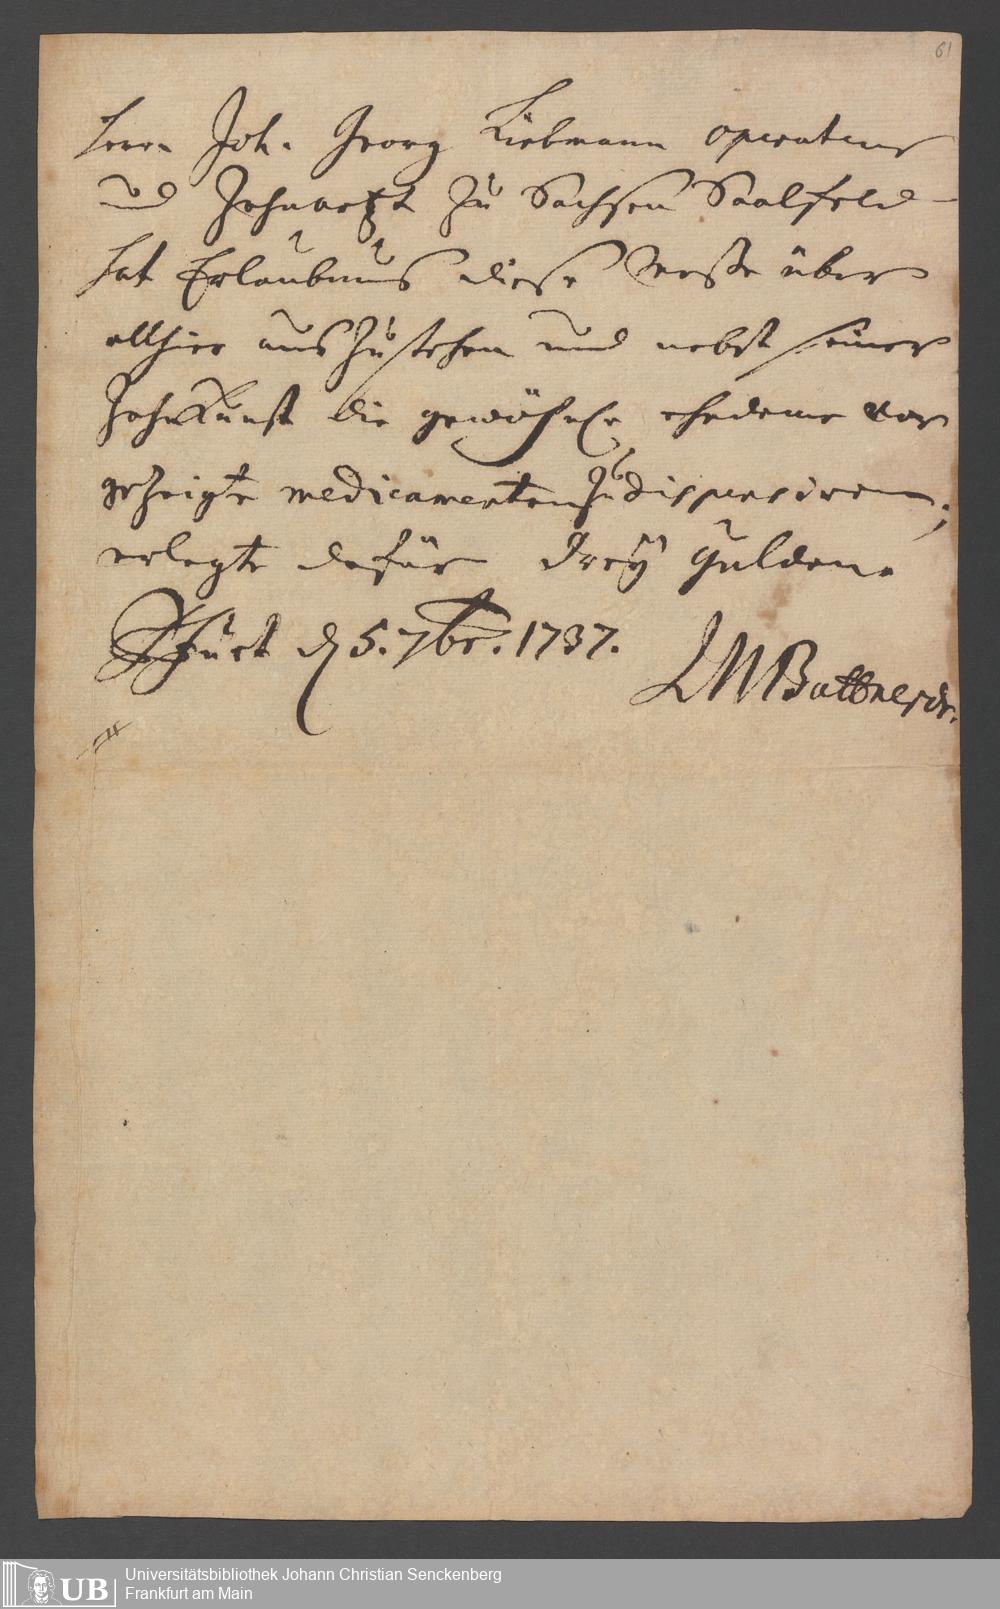 61
Herr Joh. Georg Liebmann Operateur
und Zahnartzt zu Sachsen Saalfeld
hat Erlaubnus diese Messe über
allhier auszustehen und nebst seiner
Zahnkunst die gewöhnl. ehedeme vor
gezeigte medicamenten zu dispensiren;
erlegte dafür drey Gulden.
Ffurt d 5. 7br. 1737.
UB
Universitätsbibliothek Johann Christian Senckenberg
Frankfurt am Main